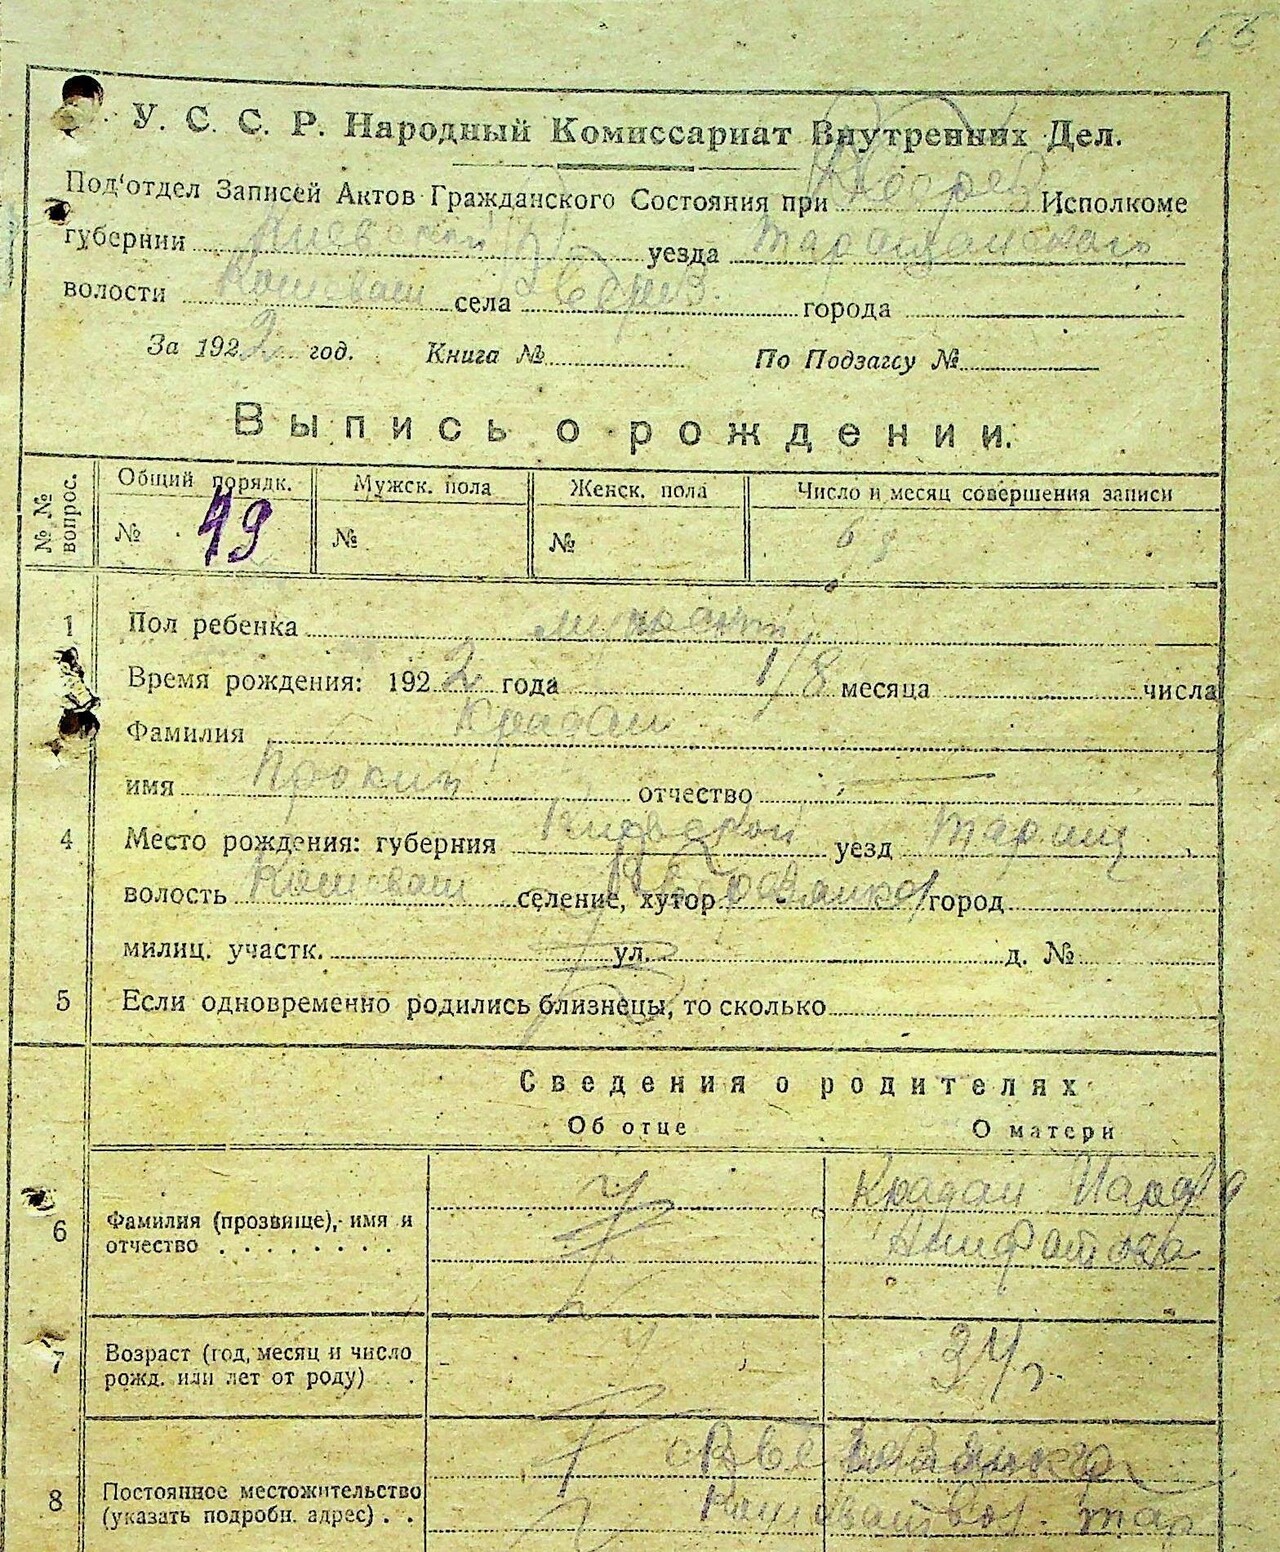 У. С. С. Р. Народный Комиссариат Внутренних Дел.
Под'отдел Записей Актов Гражданского Состояния при Исполкоме
губернии Киевской уезда Таращанского
волости Кошеват села города
За 1922 год. Книга № По Подзагсу №
Выпись о рождении.
№№ вопрос. Общий порядк. Мужск. пола Женск. пола Число и месяц совершения записи
№ 49 № № 6/8
1 Пол ребенка мужеск
Время рождения: 1922 года 1/8 месяца числа
Фамилия Крадан
имя Прокип отчество —
4 Место рождения: губерния Киевской уезд Таращ
волость Кошеват селение, хутор город
милиц. участк. ул. д. №
5 Если одновременно родились близнецы, то сколько
Сведения о родителях
Об отце О матери
6 Фамилия (прозвище), имя и отчество Крадан
7 Возраст (год, месяц и число рожд. или лет от роду) 34 г.
8 Постоянное местожительство (указать подробн. адрес)